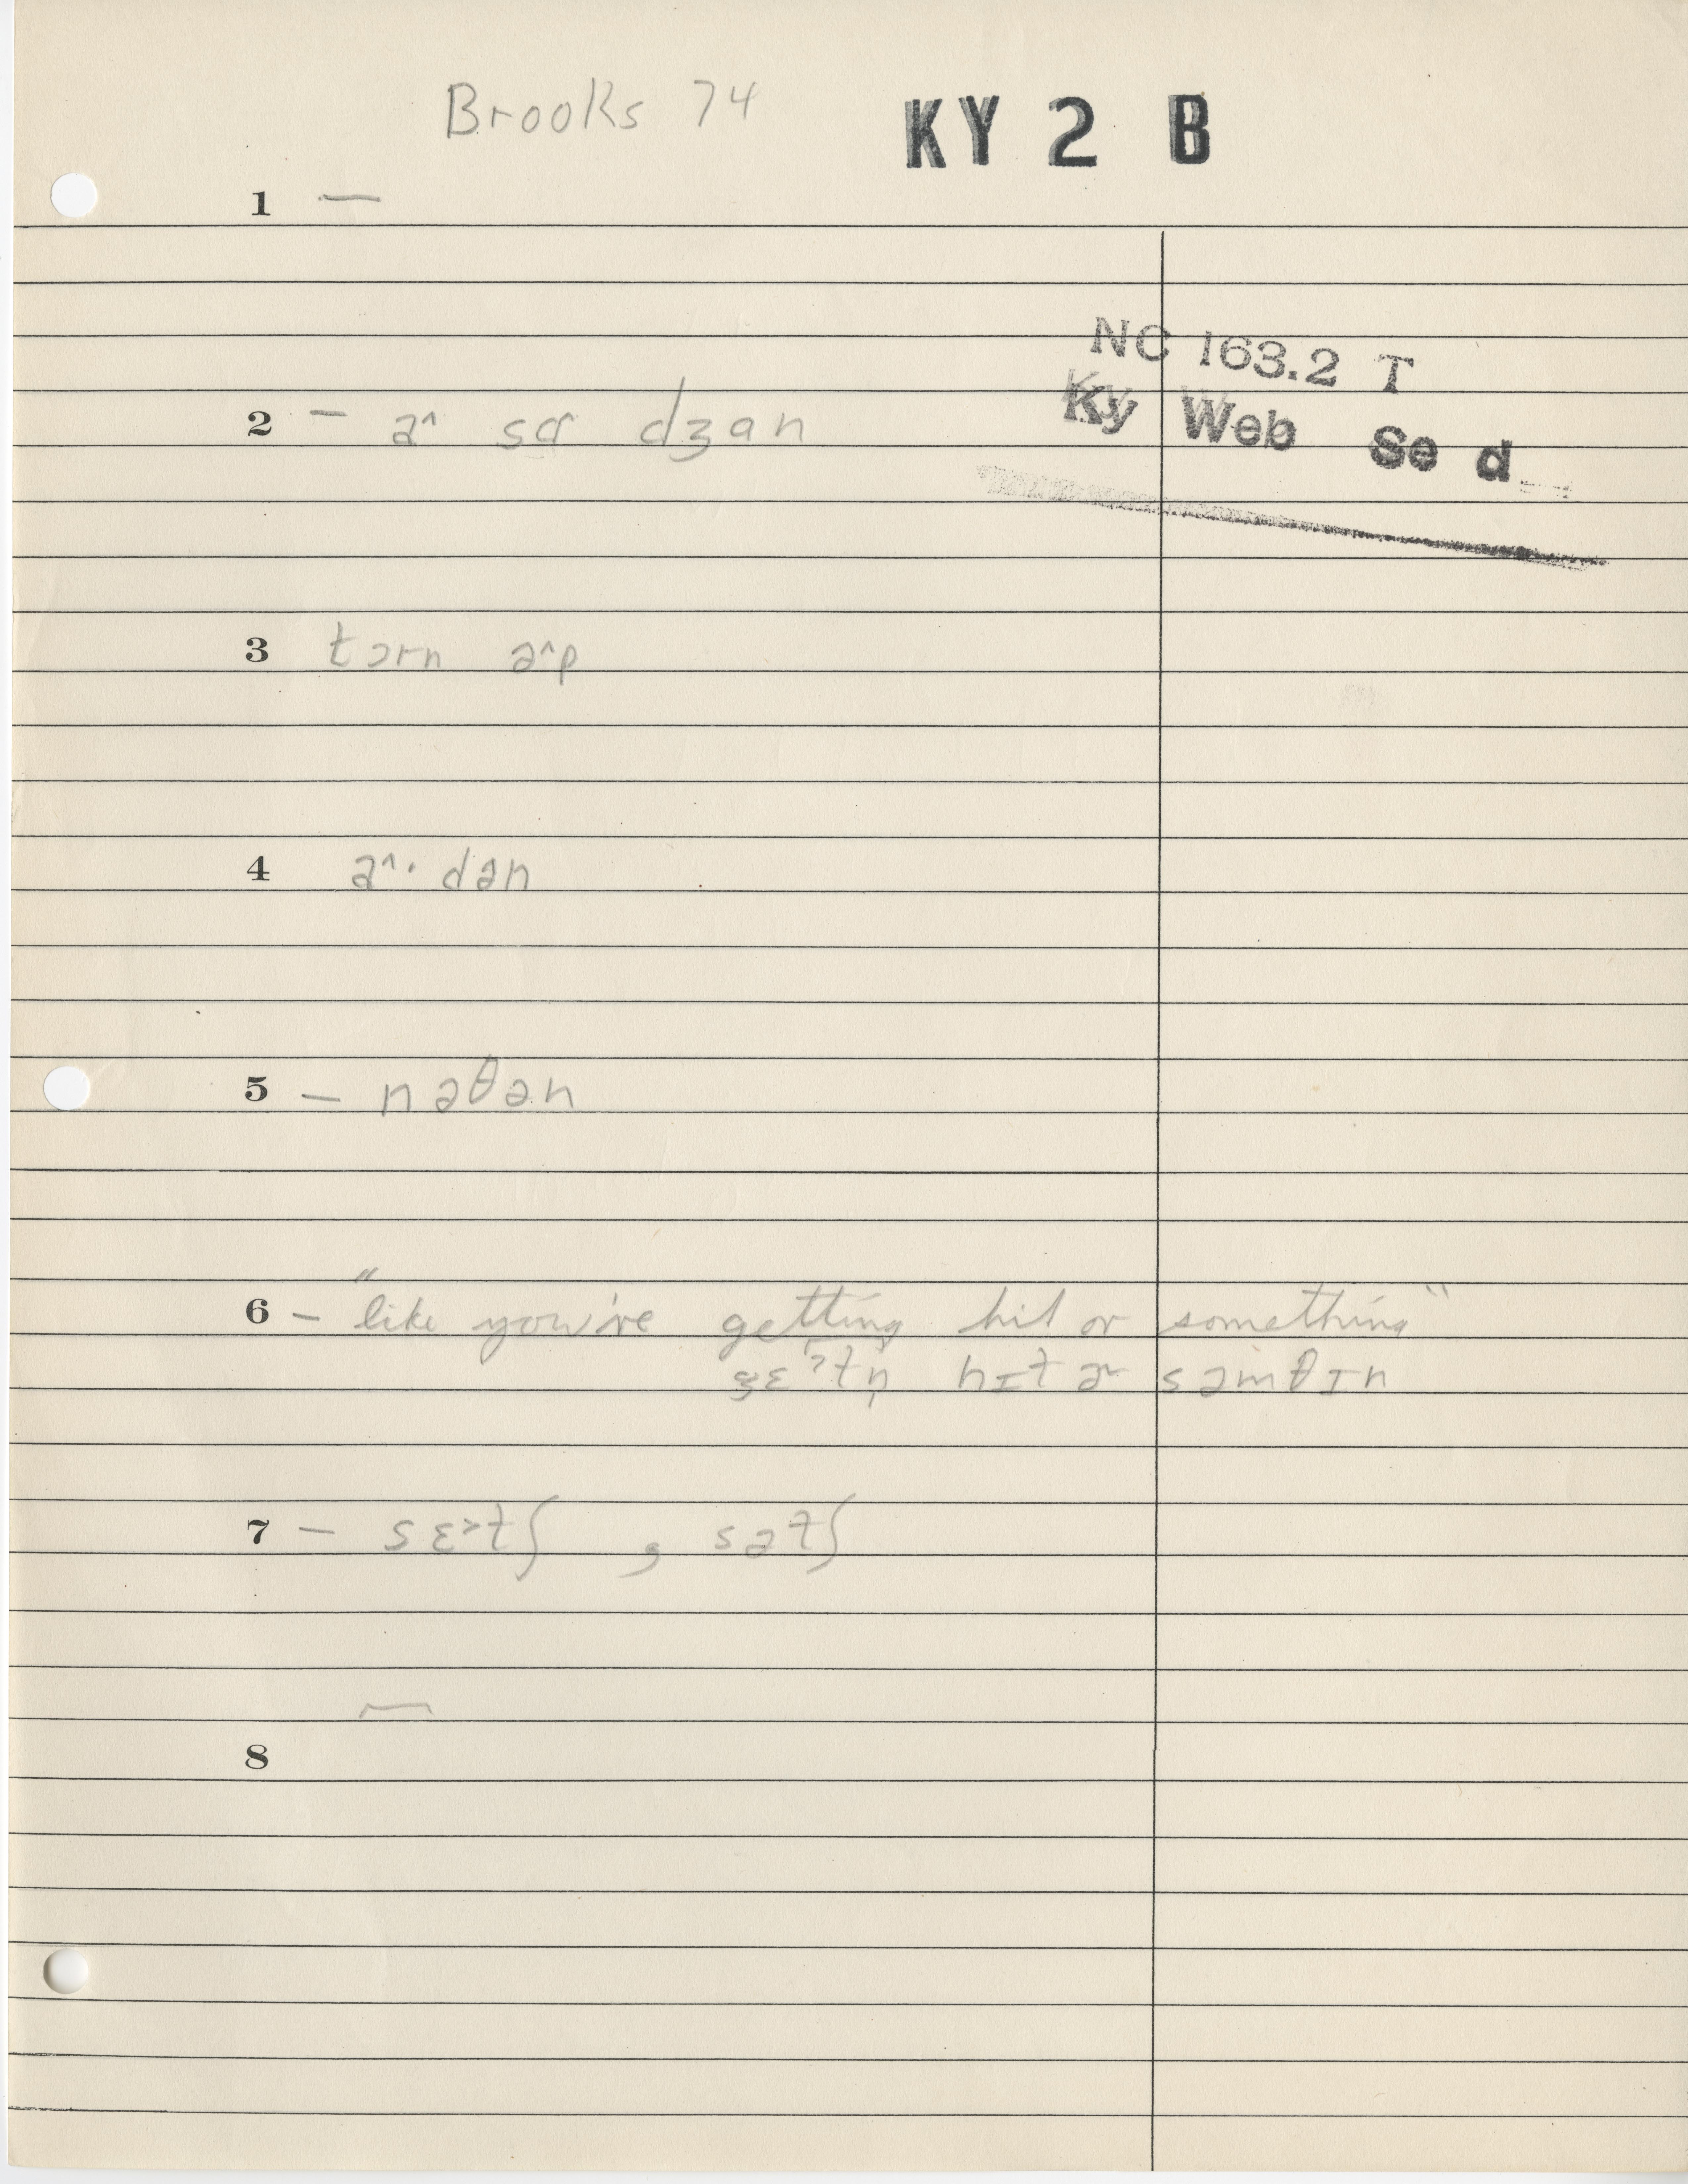 Brooks 74 KY 2 B
1 —
NC 163.2 T
Ky Web Se d
2 — ə^ sɑ dʒan
3 tɔrn ə^p
4 ə^· dən
5 — nəθən
6 — "like you're getting hit or something"
gɛˀtn̩ hɪt ɚ səmθɪn
7 — sɛ>tʃ , sətʃ
8 —